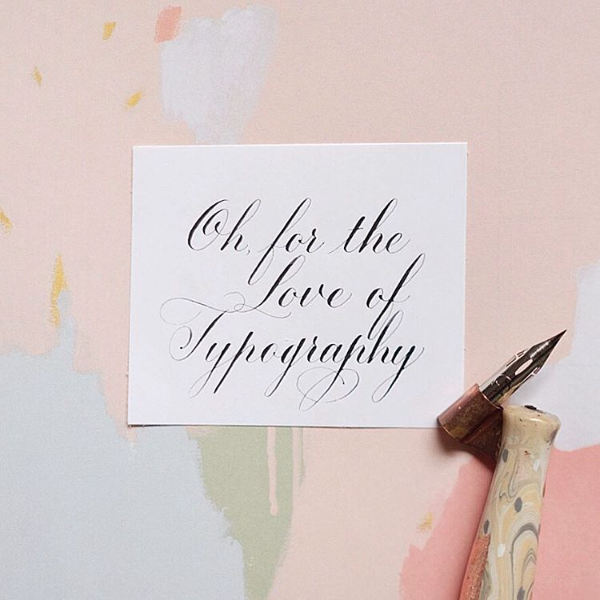 Oh, for the
Love of
Typography